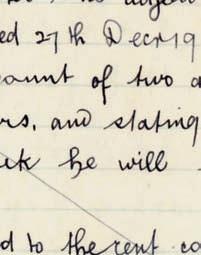 ed 27th Decr 19
ount of two a
rs, and stating
he will
d to the rent co